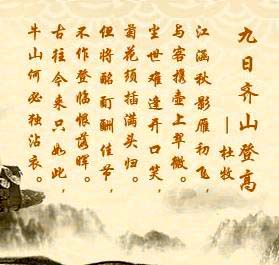 九日齐山登高
—杜牧
江涵秋影雁初飞，
与客携壶上翠微。
尘世难逢开口笑，
菊花须插满头归。
但将酩酊酬佳节，
不作登临恨落晖。
古往今来只如此，
牛山何必独沾衣。